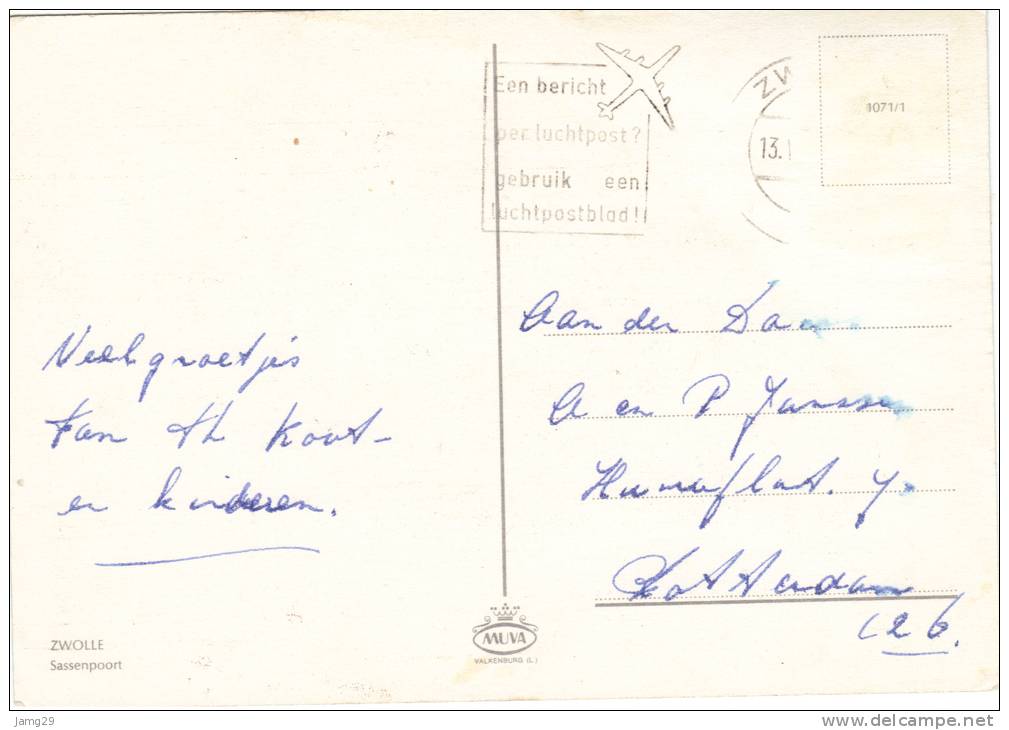 Een bericht
per luchtpost?
gebruik een
luchtpostblad!
ZW
13.
1071/1
Veel groetjes
Fan th Koot-
en kinderen.
Aan den
A en P Janssen
Rotterdam
(26.
ZWOLLE
Sassenpoort
MUVA
VALKENBURG (L.)
Jamg29
delcampe.net